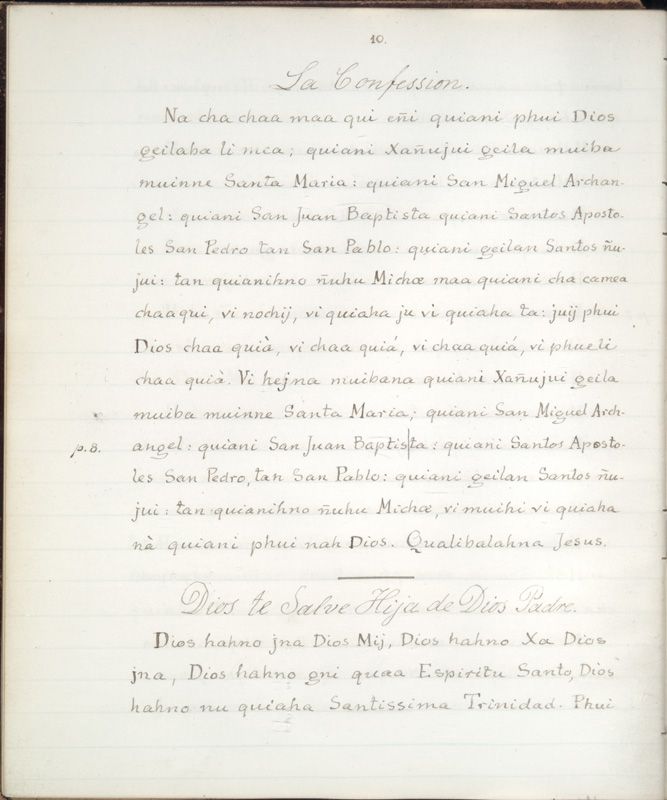 10.
La Confession.
Na cha chaa maa qui eñi quiani phui Dios
geilaha li mea; quiani Xañujui geila muiba
muinne Santa Maria: quiani San Miguel Archan-
gel: quiani San Juan Baptista quiani Santos Aposto-
les San Pedro tan San Pablo: quiani geilan Santos ñu-
jui: tan quianihno ñuhu Michæ maa quiani cha camea
chaa qui, vi nochij, vi quiaha ju vi quiaha ta: juij phui
Dios chaa quià, vi chaa quiá, vi chaa quiá, vi phueli
chaa quià. Vi hejna muibana quiani Xañujui geila
muiba muinne Santa Maria; quiani San Miguel Arch-
p. 8. angel: quiani San Juan Baptis|ta: quiani Santos Aposto-
les San Pedro, tan San Pablo: quiani geilan Santos ñu-
jui: tan quianihno ñuhu Michæ, vi muihi vi quiaha
nà quiani phui nah Dios. Qualibalahna Jesus.
Dios te Salve Hija de Dios Padre.
Dios hahno jna Dios Mij, Dios hahno Xa Dios
jna, Dios hahno gni quaa Espiritu Santo, Dios
hahno nu quiaha Santissima Trinidad. Phui